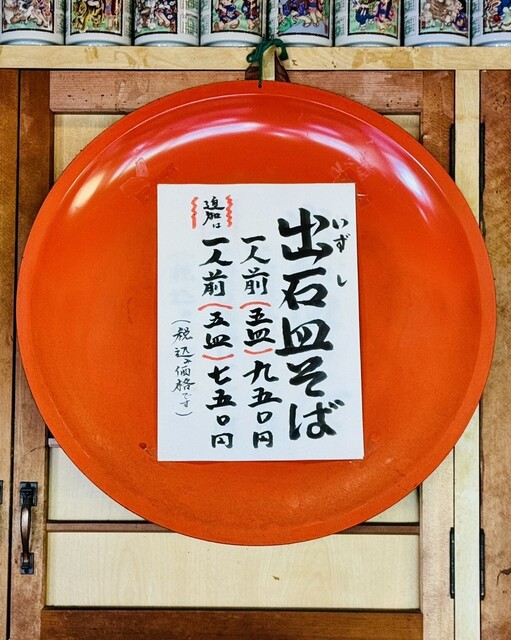 出石皿そば
いずし
一人前(五皿)九五〇円
追加は
一人前(五皿)七五〇円
(税込み価格です)